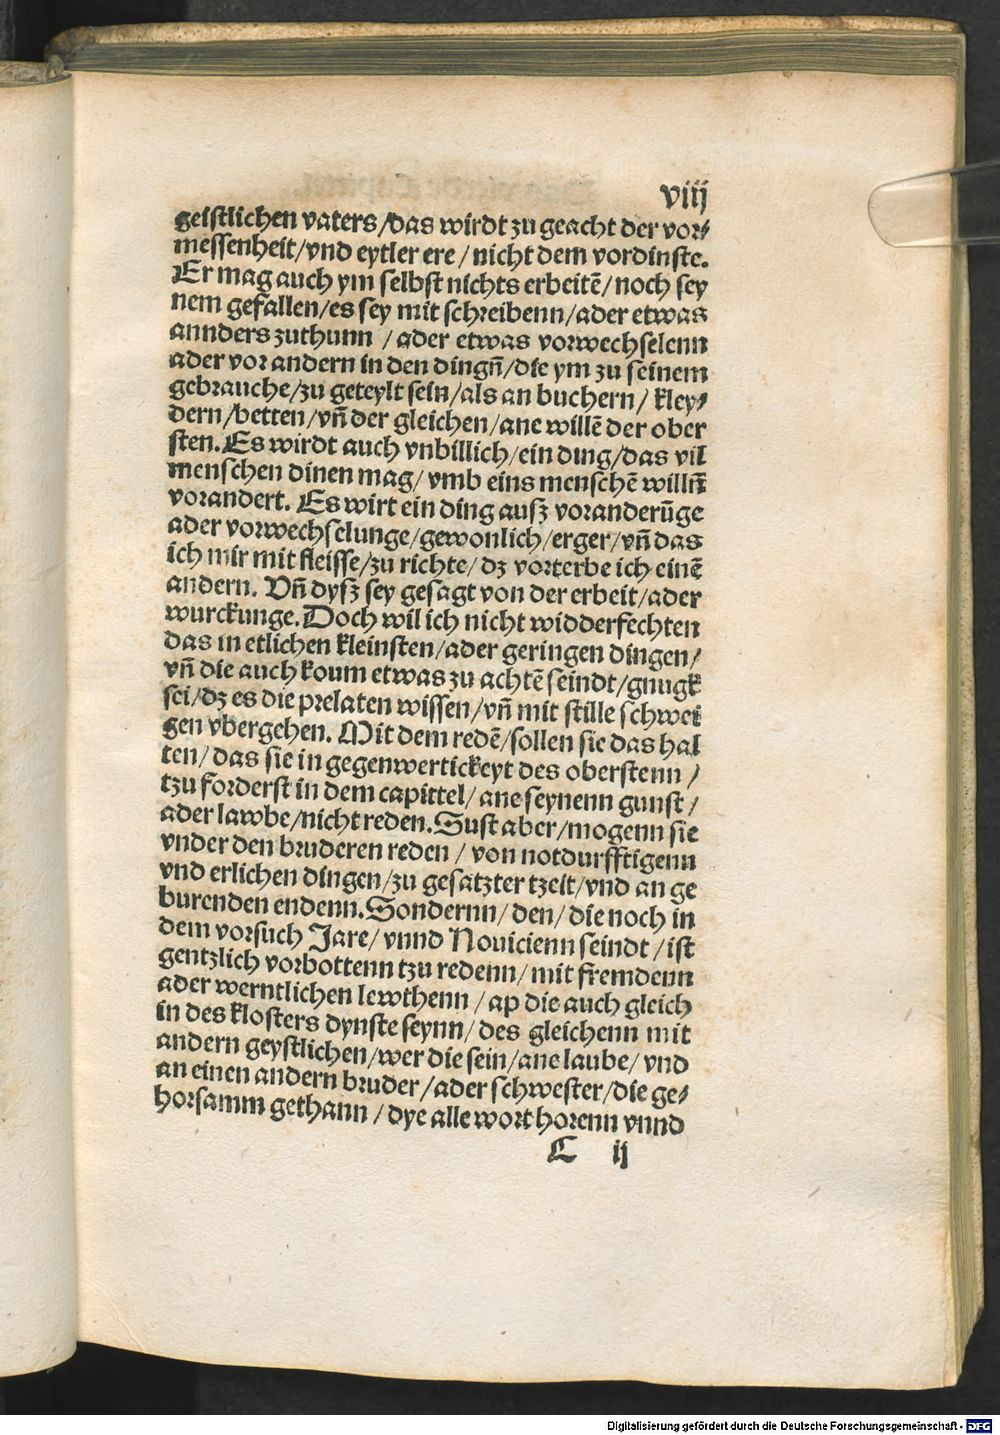 viij
geistlichen vaters/das wirdt zu geacht der vor⸗
messenheit/vnd eytler ere/nicht dem vordinste.
Er mag auch ym selbst nichts erbeitē/noch sey
nem gefallen/es sey mit schreibenn/ader etwas
annders zuthunn /ader etwas vorwechselenn
ader vor andern in den dingn̄/die ym zu seinem
gebrauche/zu geteylt sein/als an buchern/ kley⸗
dern/betten/vn̄ der gleichen/ane willē der ober
sten. Es wirdt auch vnbillich/ein ding/das vil
menschen dinen mag/vmb eins menschē willn̄
vorandert. Es wirt ein ding ausz voranderūge
ader vorwechselunge/gewonlich/erger/vn̄ das
ich mir mit fleisse/zu richte/dz vorterbe ich einē
andern. Vn̄ dysz sey gesagt von der erbeit/ader
wurckunge. Doch wil ich nicht widderfechten
das in etlichen kleinsten/ader geringen dingen/
vn̄ die auch koum etwas zu achtē seindt/gnugk
sei/dz es die prelaten wissen/vn̄ mit stille schwei
gen vbergehen. Mit dem redē/sollen sie das hal
ten/das sie in gegenwertickeyt des oberstenn /
tzu forderst in dem capittel/ane seynenn gunst/
ader lawbe/nicht reden. Sust aber/mogenn sie
vnder den bruderen reden / von notdurfftigenn
vnd erlichen dingen/zu gesatzter tzeit/vnd an ge
burenden endenn. Sondernn/den/die noch in
dem vorsuch Jare/vnnd Nouicienn seindt /ist
gentzlich vorbottenn tzu redenn/mit fremdenn
ader werntlichen lewthenn /ap die auch gleich
in des klosters dynste seynn/des gleichenn mit
andern geystlichen/wer die sein/ane laube/vnd
an einen andern bruder/ader schwester/die ge⸗
horsamm gethann /dye alle wort horenn vnnd
C ij
Digitalisierung gefördert durch die Deutsche Forschungsgemeinschaft - DFG